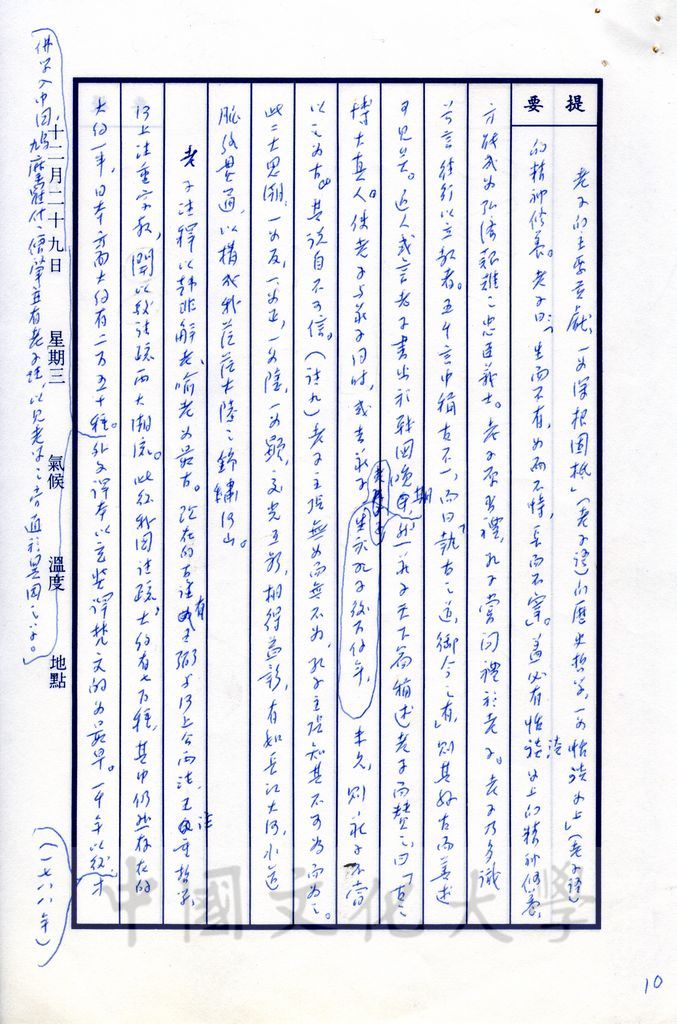 提要
老子的主要貢獻，一為深根固柢」（老子語）的歷史哲學，一為恬淡為上」（老子語）
的精神修養。老子曰：「生而不有，為而不恃，長而不宰。」蓋必有恬淡為上的精神修養，
方能成為弘濟艱難之忠臣義士。老子原為禮，孔子嘗問禮於老子。老子乃多識
前言往行以立教者。五千言中稱古不一，而曰「執古之道，御今之有」，則其好古而善述
可見矣。近人或言老子書出於戰國晚期，然莊子天下篇稱述老子而贊之曰「古之
博大真人。使老子與莊子同時，或去莊子未久，則莊子不當
以之為古。其說自不可信。（註九）老子主張無為而無不為，孔子主張知其不可為而為之。
此二大思潮，一為反，一為正，一為陰，一為顯，交光互影，相得益彰，有如長江大河，水道
脈絡貫通，以構成我茫茫大陸之錦繡河山。
老子注釋以韓非解老、喻老為最古。現在的古注有王弼與河上公兩注，王注重哲學，
河上注重宗教，開以後注疏兩大潮流。此後我國注疏，大約有七百種，其中仍然存在的
大約一半，日本方面大約有二百五十種。外文譯本以玄奘譯梵文的為最早。一千年以後，才
（一七八八年）
十二月二十九日 星期三 氣候 溫度 地點
佛學入中國，鳩摩羅什、僧肇並有老子注，以見老學之旁通於異國之學。
中國文化大學
10